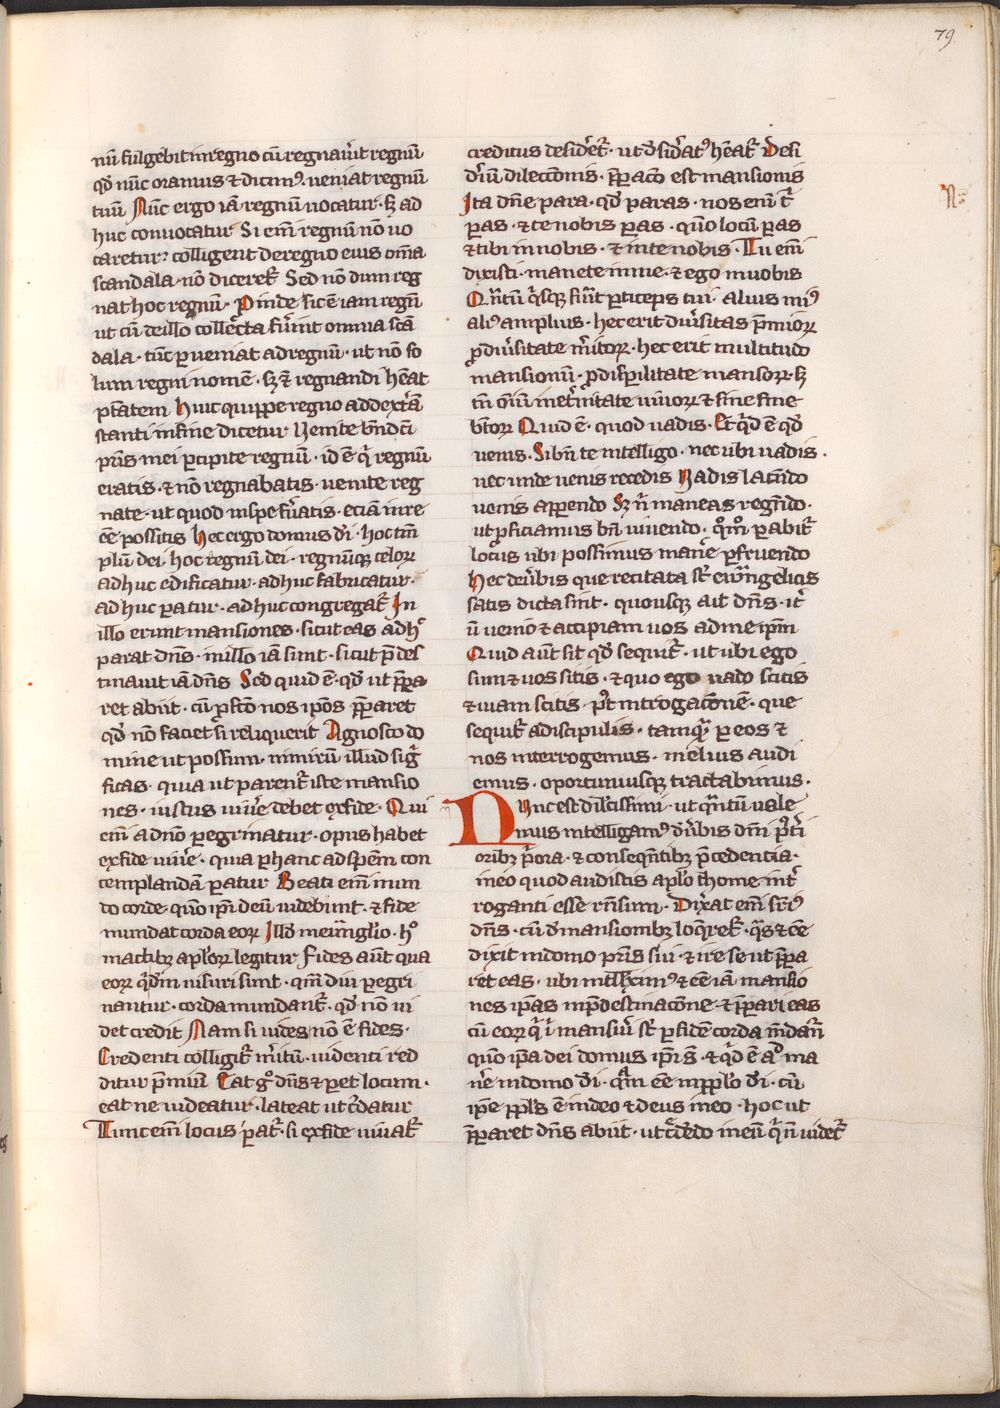 79
nū fulgebit in regno cū regnaūit regnū
qd nūc oramus ⁊ dicimꝰ. ueniat regnū
tuū Nūc ergo iā regnū uocatur · sꝫ ad
huc conuocatur Si eni regnū nō uo
caretur? colligent de regno eius om̄a
scandala · nō diceret᷑ Sed nō dum reg
nat hoc regnū · Proinde sic ē iam regnū
ut cū de illo collecta fuīnt omnia scā
dala · tūc ꝑueniat ad regnū · ut nō so
lum regni nomē · sꝫ ⁊ regnandi hēat
ptatem Huic quippe regno ad dextrā
stanti in fine dicetur Uenite bn̄dcī
pr̄is mei ꝑcipite regnū · id ē qi regnū
eratis · ⁊ nō regnabatis · uenite reg
nate · ut quod in spe fūatis · etiā in re
eē possitis Hec ergo domus di · hoc tm̄
plū dei · hoc regnū dei · regnūqꝫ celoꝝ
adhuc edificatur · adhuc fabricatur ·
adhuc ꝑatur · adhuc congregat᷑ In
illo erunt mansiones · sicut eas adhᶜ
parat dn̄s · in illo iā sunt · sicut p̄des
tinauit iā dn̄s Sed quid ē · qd ut p̄pa
ret abiit · cū ꝓfcō nos ip̄os p̄paret
qd nō faciet si reliquerit Agnosco do
mine ut possum · nimirū illud sigī
ficas · quia ut parent᷑ iste mansio
nes · iustus uiūe debet ex fide · Qui
eni a dn̄o ꝑegrinatur · opus habet
ex fide uiūe · quia ꝑ hanc ad spēm con
templandā ꝑatur Beati eni mun
do corde · quō ip̄i deū uidebunt · ⁊ fide
mundat corda eoꝝ Illd in euāglio · hᵒ
in actibꝫ aploꝝ legitur Fides aūt qua
eoꝝ qi dm̄ uisuri sunt · qm̄ diu ꝑegri
nantur · corda mundant᷑ · qd nō ui
det credit Nam si uides nō ē fides ·
Credenti colligit᷑ mītū · uidenti red
ditur p̄miū Eat gᵒ dn̄s ⁊ ꝑet locum ·
eat ne uideatur · lateat ut cdatur
Tunc eni locus ꝑat᷑ · si ex fide uiuat᷑
creditus desidet᷑ · ut dsidatꝰ hēat᷑ Desi
driū dilectionis · p̄paco est mansionis
Ita dn̄e para · qd paras · nos eni ti
ꝑas · ⁊ te nobis ꝑas · qm̄ locū ꝑas
⁊ tibi in nobis · ⁊ in te nobis · Tu eni
dixisti · manete in me · ⁊ ego in uobis
Qntū qisqꝫ fuīt ꝑticeps tui · alius miꝰ
aliꝰ amplius · hec erit diūsitas p̄mioꝝ
ꝓ diūsitate mītoꝝ · hec erit multitudo
mansionū · ꝓ disꝑilitate mansoꝝ · sꝫ
tn̄ oīū in et̄nitate uiuoꝝ ⁊ sine fine
btoꝝ Quid ē · quod uadis · Et qid ē qd
uenis · Si bn̄ te intelligo · nec ubi uadis ·
nec unde uenis recedis Uadis latndo
uenis apꝑendo Sꝫ n̄ maneas regndo ·
ut ꝓficiamus bn̄ uiuendo · qm̄o ꝑabit᷑
locus ubi possimus manē ꝑfruendo
Hec de ūbis que recitata st̄ euāngelicis
satis dicta sint · quousqꝫ ait dn̄s · iti
ū uenio ⁊ accipiam uos ad me ip̄m
Quid aūt sit qd sequit᷑ · ut ubi ego
sum ⁊ uos sitis · ⁊ quo ego uado scitis
⁊ uiam scitis · pt introgacōnē · que
sequit᷑ a discipulis · tamqā ꝑ eos ⁊
nos interrogemus · melius audi
emus · oportuniusqꝫ tractabimus ·
Nunc est dilcissimi · ut qntū uale
mus intelligamꝰ d ūbis dn̄i posti
oribꝫ priora · ⁊ conseqntibꝫ p̄cedencia ·
in eo quod audistis aplo thome inti
roganti esse rn̄sum · Dixat eni supiꝰ
dn̄s · cū d mansionibꝫ loqret᷑ · qas ⁊ ee
dixit in domo pr̄is sui · ⁊ ire se ut p̄pa
ret eas · ubi intllximꝰ ⁊ eē iā mansio
nes ip̄as in p̄destinacōne · ⁊ p̄pari eas
cū eoꝝ qi ī mansuī st̄ ꝑ fidē corda mdanī
quō ip̄a dei domus ip̄i s̄ · ⁊ qid ē aᵒ ma
nē in domo di · qam eē in pplo di · cū
ip̄e ppls ē in deo ⁊ deus in eo · hoc ut
p̄paret dn̄s abiit · ut cdendo in eū qi n̄ uidet᷑